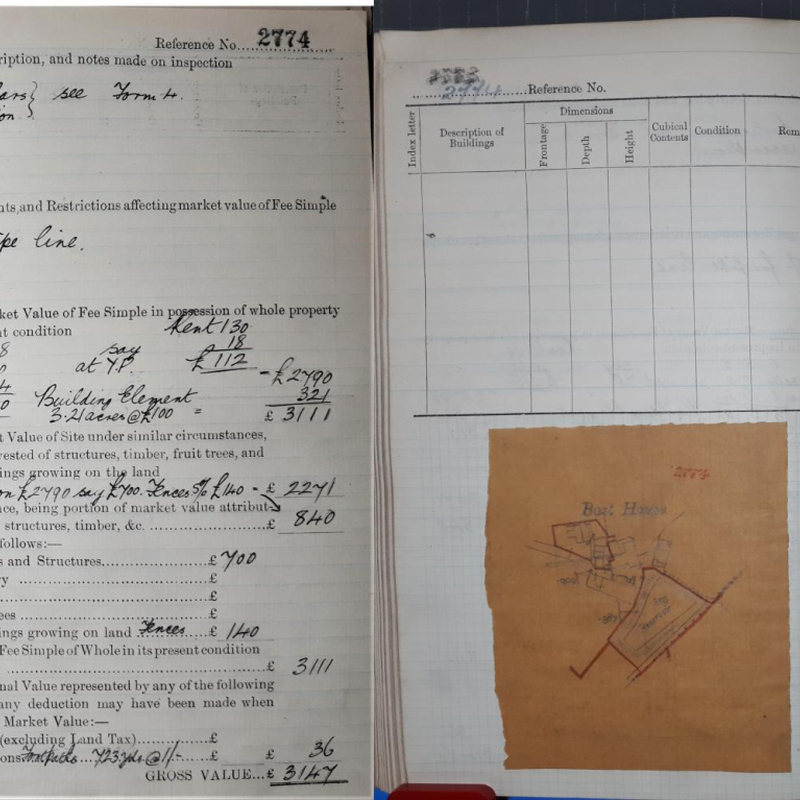 Reference No. 2774
ription, and notes made on inspection
ars } see Form 4.
on }
nts, and Restrictions affecting market value of Fee Simple
pe line.
ket Value of Fee Simple in possession of whole property
nt condition Rent 130
8 say 18
at Y.P. £112
- £2790
4 Building Element 321
0 3.21 acres @ £100 = £ 3111
t Value of Site under similar circumstances,
rested of structures, timber, fruit trees, and
ings growing on the land
on £2790 say £700. Fences 5% £140 - £ 2271
nce, being portion of market value attribut-
structures, timber, &c. £ 840
follows:—
s and Structures £ 700
ry £
£
ees £
ings growing on land Fences £ 140
Fee Simple of Whole in its present condition
£ 3111
nal Value represented by any of the following
any deduction may have been made when
Market Value:—
(excluding Land Tax) £
ons Footpaths 723 yds @ 1/- £ £ 36
GROSS VALUE... £ 3147
2774 Reference No.
Index letter
Description of Buildings
Dimensions
Frontage
Depth
Height
Cubical Contents
Condition
Rem
2774